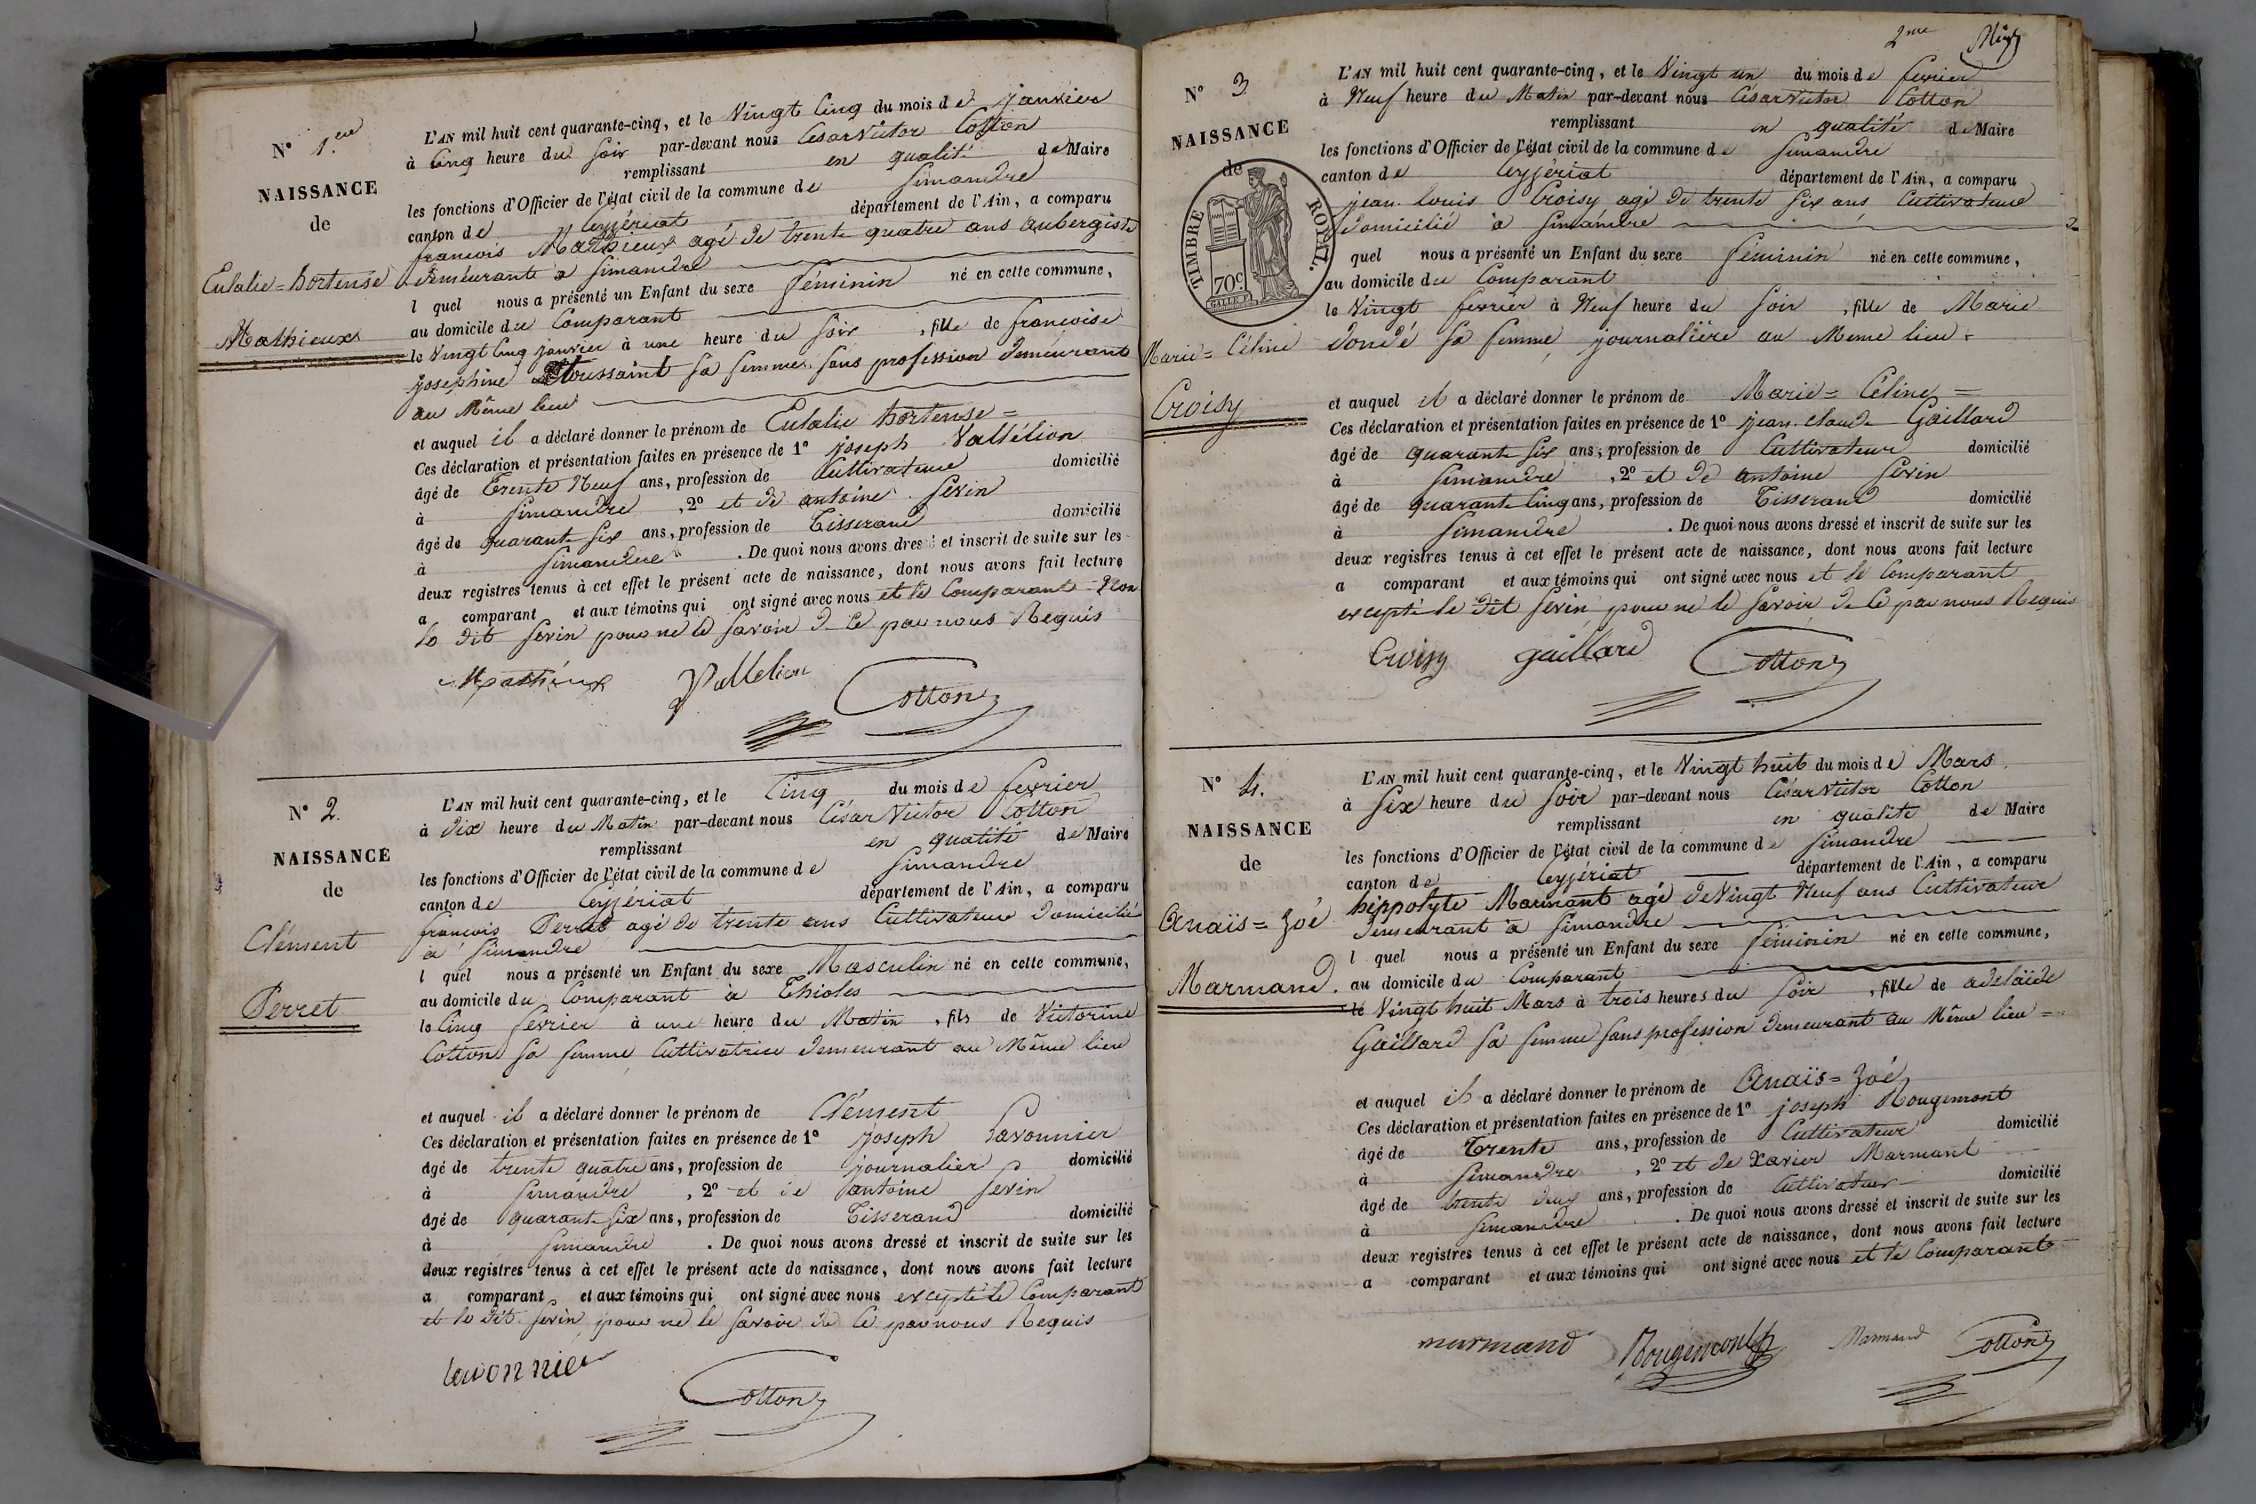 N° 1.er
NAISSANCE
de
Eulalie = hortense
Mathieux
L'AN mil huit cent quarante-cinq, et le Vingt Cinq du mois de janvier
à Cinq heure du Soir par-devant nous César Victor Cotton
remplissant en qualité de Maire
les fonctions d'Officier de l'état civil de la commune de Simandre
canton de Ceyzériat département de l'Ain, a comparu
francois Mathieux agé de trente quatre ans aubergiste
demeurant à Simandre
l quel nous a présenté un Enfant du sexe féminin né en cette commune,
au domicile du Comparant
le Vingt Cinq janvier à une heure du Soir, fille de francoise
josephine Toussaint sa femme sans profession demeurant
au Même lieu
et auquel il a déclaré donner le prénom de Eulalie hortense =
Ces déclaration et présentation faites en présence de 1° joseph Vallélion
âgé de Trente Neuf ans, profession de Cultivateur domicilié
à Simandre, 2° et de antoine Sevin
âgé de quarante six ans, profession de Tisserand domicilié
à Simandre. De quoi nous avons dressé et inscrit de suite sur les
deux registres tenus à cet effet le présent acte de naissance, dont nous avons fait lecture
a comparant et aux témoins qui ont signé avec nous et le Comparant Non
le dit Sevin pour ne le savoir de ce par nous Requis
Mathieux Vallelion Cotton
N° 2.
NAISSANCE
de
Clément
Perret
L'AN mil huit cent quarante-cinq, et le Cinq du mois de fevrier
à Dix heure du Matin par-devant nous César Victor Cotton
remplissant en qualité de Maire
les fonctions d'Officier de l'état civil de la commune de Simandre
canton de Ceyzériat département de l'Ain, a comparu
francois Perret agé de trente ans Cultivateur domicilié
à Simandre
l quel nous a présenté un Enfant du sexe Masculin né en cette commune,
au domicile du Comparant à Thioles
le Cinq fevrier à une heure du Matin, fils de Victorine
Cotton sa femme Cultivatrice demeurant au Même lieu
et auquel il a déclaré donner le prénom de Clément
Ces déclaration et présentation faites en présence de 1° joseph Lavonnier
âgé de trente quatre ans, profession de journalier domicilié
à Simandre, 2° et de antoine Sevin
âgé de quarante Six ans, profession de Tisserand domicilié
à Simandre. De quoi nous avons dressé et inscrit de suite sur les
deux registres tenus à cet effet le présent acte de naissance, dont nous avons fait lecture
a comparant et aux témoins qui ont signé avec nous excepté le Comparant
et le dit Sevin pour ne le savoir de ce par nous Requis
lavonnier
Cotton
2me
N° 3
NAISSANCE
de
TIMBRE ROYAL.
70c
Marie = Céline
Croisy
L'AN mil huit cent quarante-cinq, et le Vingt un du mois de fevrier
à Neuf heure du Matin par-devant nous César Victor Cotton
remplissant en qualité de Maire
les fonctions d'Officier de l'état civil de la commune de Simandre
canton de Ceyzériat département de l'Ain, a comparu
jean louis Croisy agé de trente six ans Cultivateur
domicilié à Simandre
quel nous a présenté un Enfant du sexe féminin né en cette commune,
au domicile du Comparant
le Vingt fevrier à Neuf heure du Soir, fille de Marie
Dondé sa femme journalière au Meme lieu =
et auquel il a déclaré donner le prénom de Marie = Céline =
Ces déclaration et présentation faites en présence de 1° jean claude Gaillard
âgé de quarante six ans, profession de Cultivateur domicilié
à Simandre, 2° et de antoine Sevin
âgé de quarante Cinq ans, profession de Tisserand domicilié
à Simandre. De quoi nous avons dressé et inscrit de suite sur les
deux registres tenus à cet effet le présent acte de naissance, dont nous avons fait lecture
a comparant et aux témoins qui ont signé avec nous et le Comparant
excepté le dit Sevin pour ne le savoir de ce par nous Requis
Croisy gaillard Cotton
N° 4.
NAISSANCE
de
Anaïs = Zoé
Marmand.
L'AN mil huit cent quarante-cinq, et le Vingt huit du mois de Mars
à Six heure du Soir par-devant nous César Victor Cotton
remplissant en qualité de Maire
les fonctions d'Officier de l'état civil de la commune de Simandre
canton de Ceyzériat département de l'Ain, a comparu
hippolyte Marmant agé de Vingt Neuf ans Cultivateur
demeurant à Simandre
l quel nous a présenté un Enfant du sexe féminin né en cette commune,
au domicile du Comparant
le Vingt huit Mars à trois heures du Soir, fille de adelaïde
Gaillard sa femme sans profession demeurant au Même lieu =
et auquel il a déclaré donner le prénom de Anaïs = Zoé
Ces déclaration et présentation faites en présence de 1° joseph Rougemont
âgé de Trente ans, profession de Cultivateur domicilié
à Simandre, 2° et de Xavier Marmant
âgé de trente deux ans, profession de Cultivateur domicilié
à Simandre. De quoi nous avons dressé et inscrit de suite sur les
deux registres tenus à cet effet le présent acte de naissance, dont nous avons fait lecture
a comparant et aux témoins qui ont signé avec nous et le Comparant
marmand Rougemont Marmand Cotton